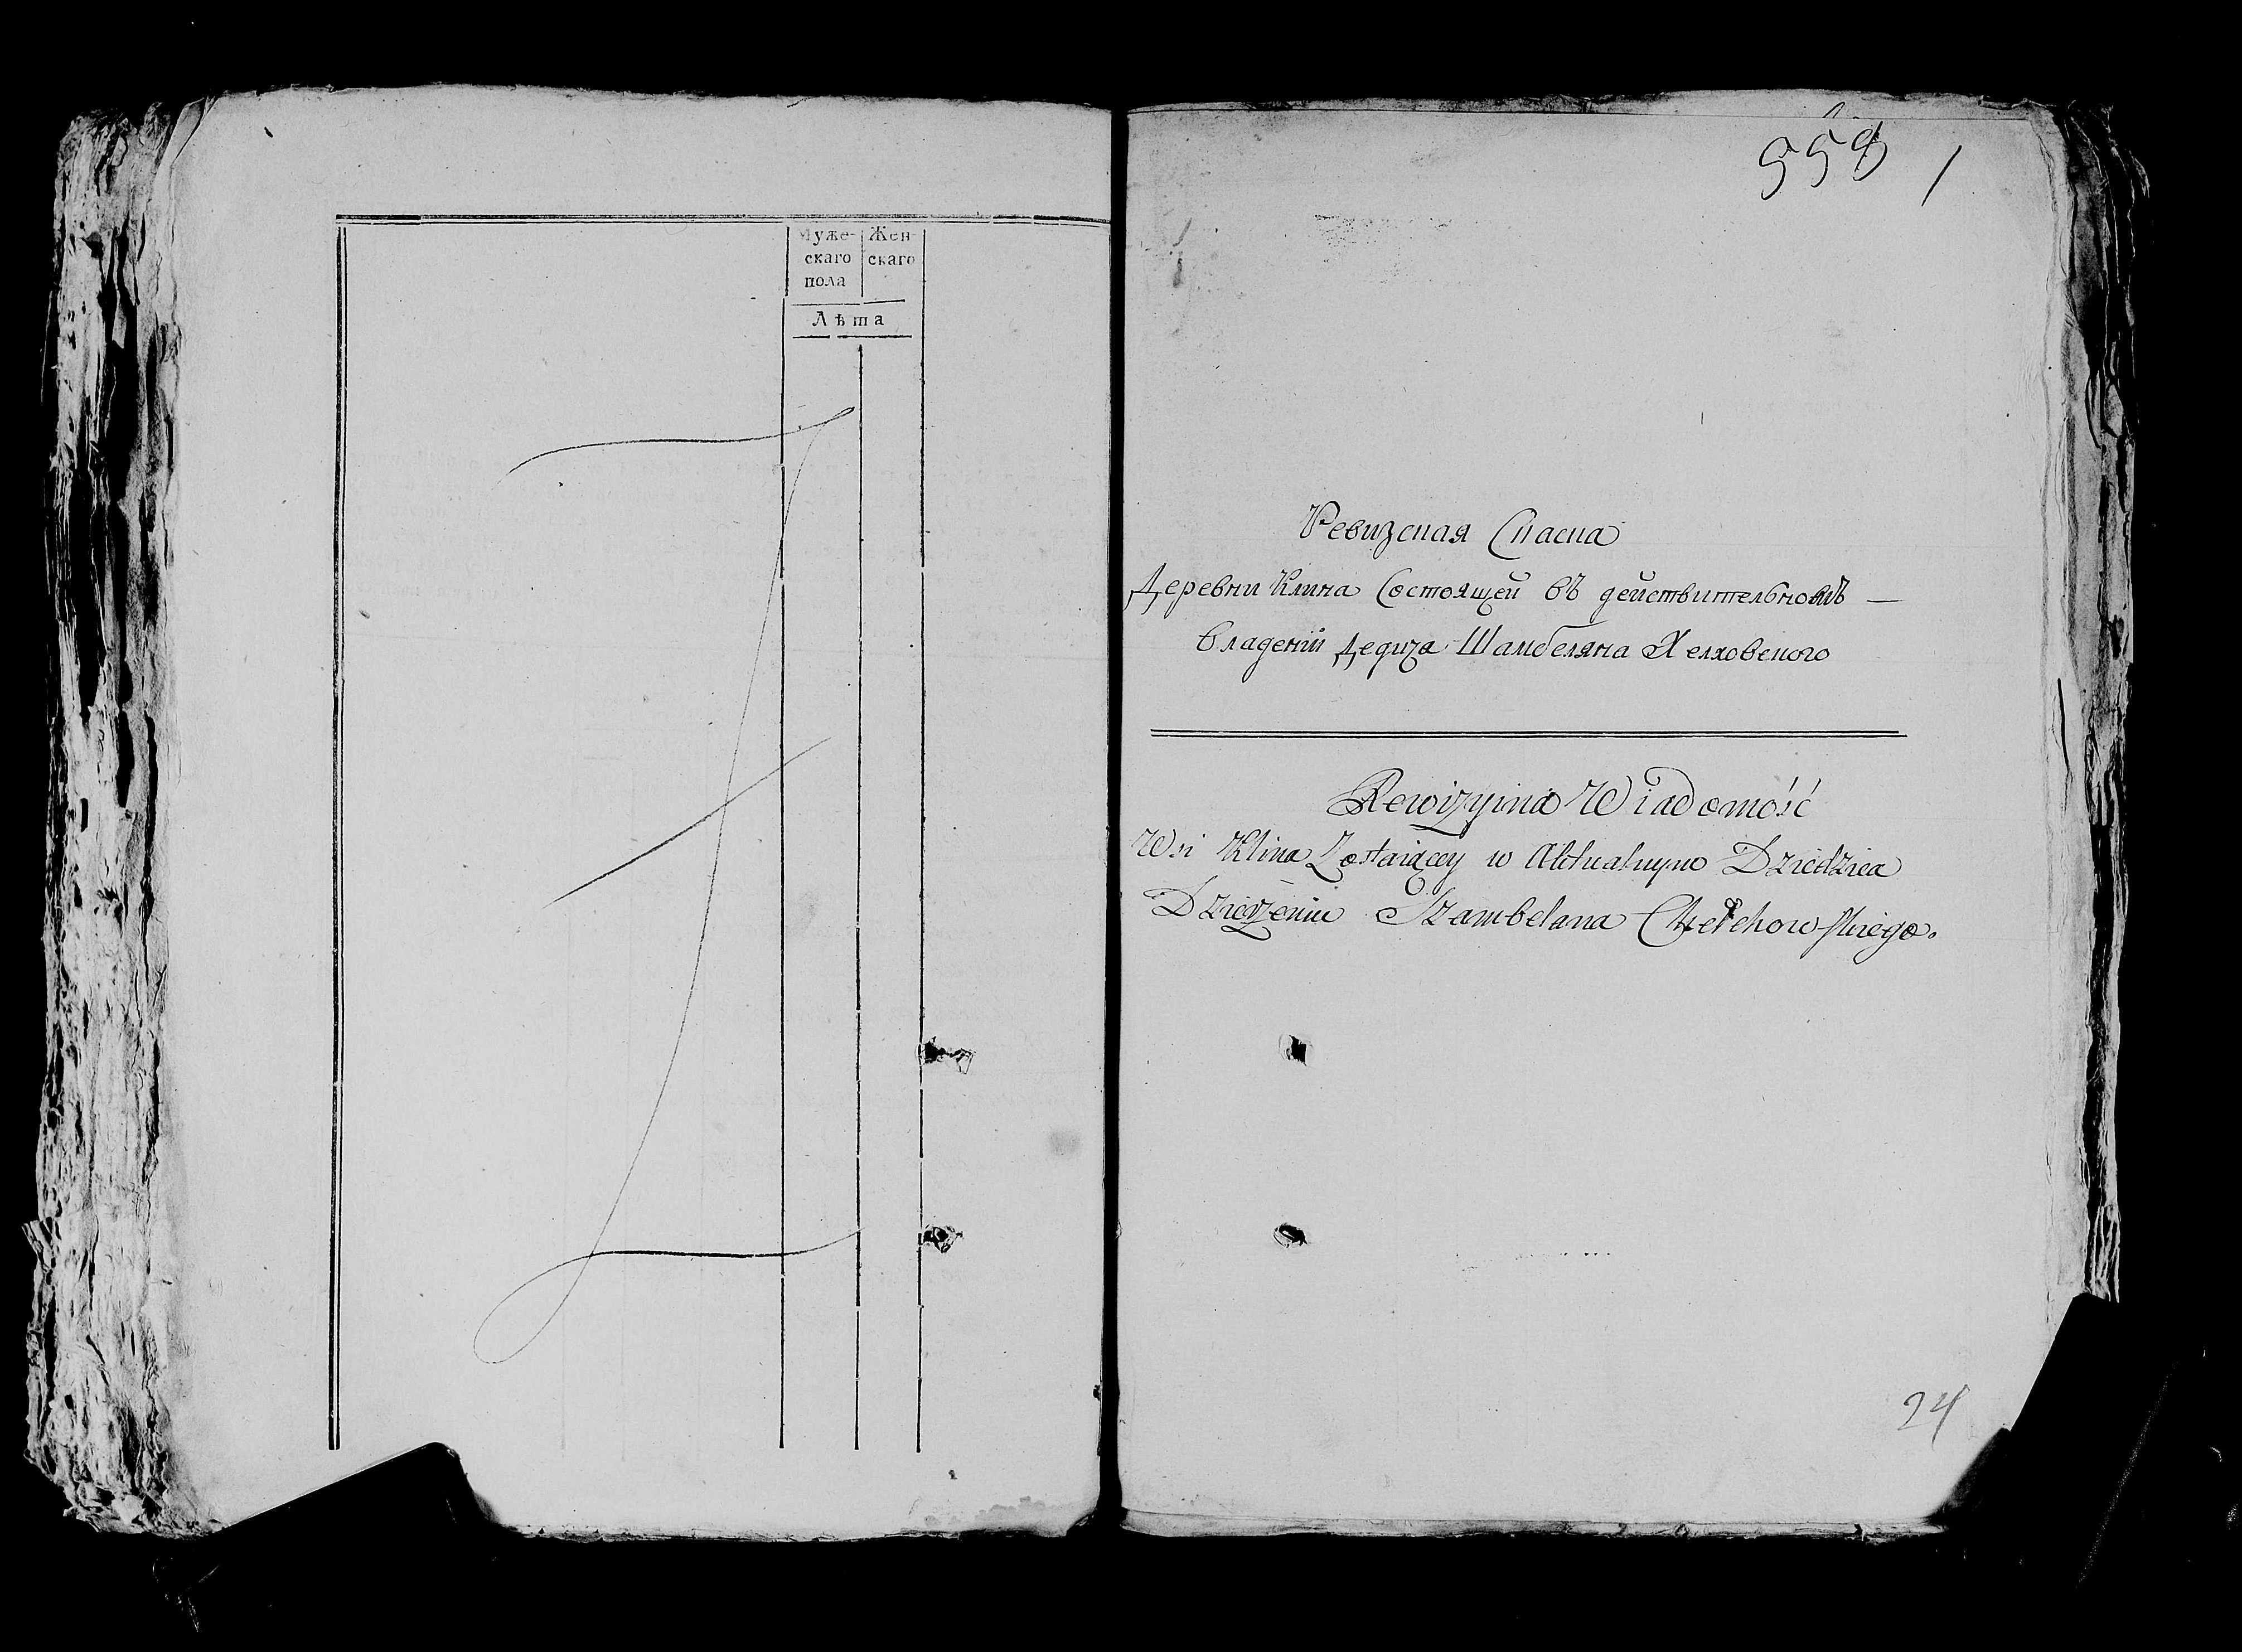 Муже- Жен-
скаго скаго
пола
Лѣта
558 1
Ревизская Скаска
Деревни Клина Состоящей въ действительномъ —
владении Дедича Шамбеляна Хелховского
Rewizyina Wiadomość
Wsi Klina Zostaiącey w Aktualnym Dziedzica
Dziedzeniu Szambelana Chełchowskiego.
24